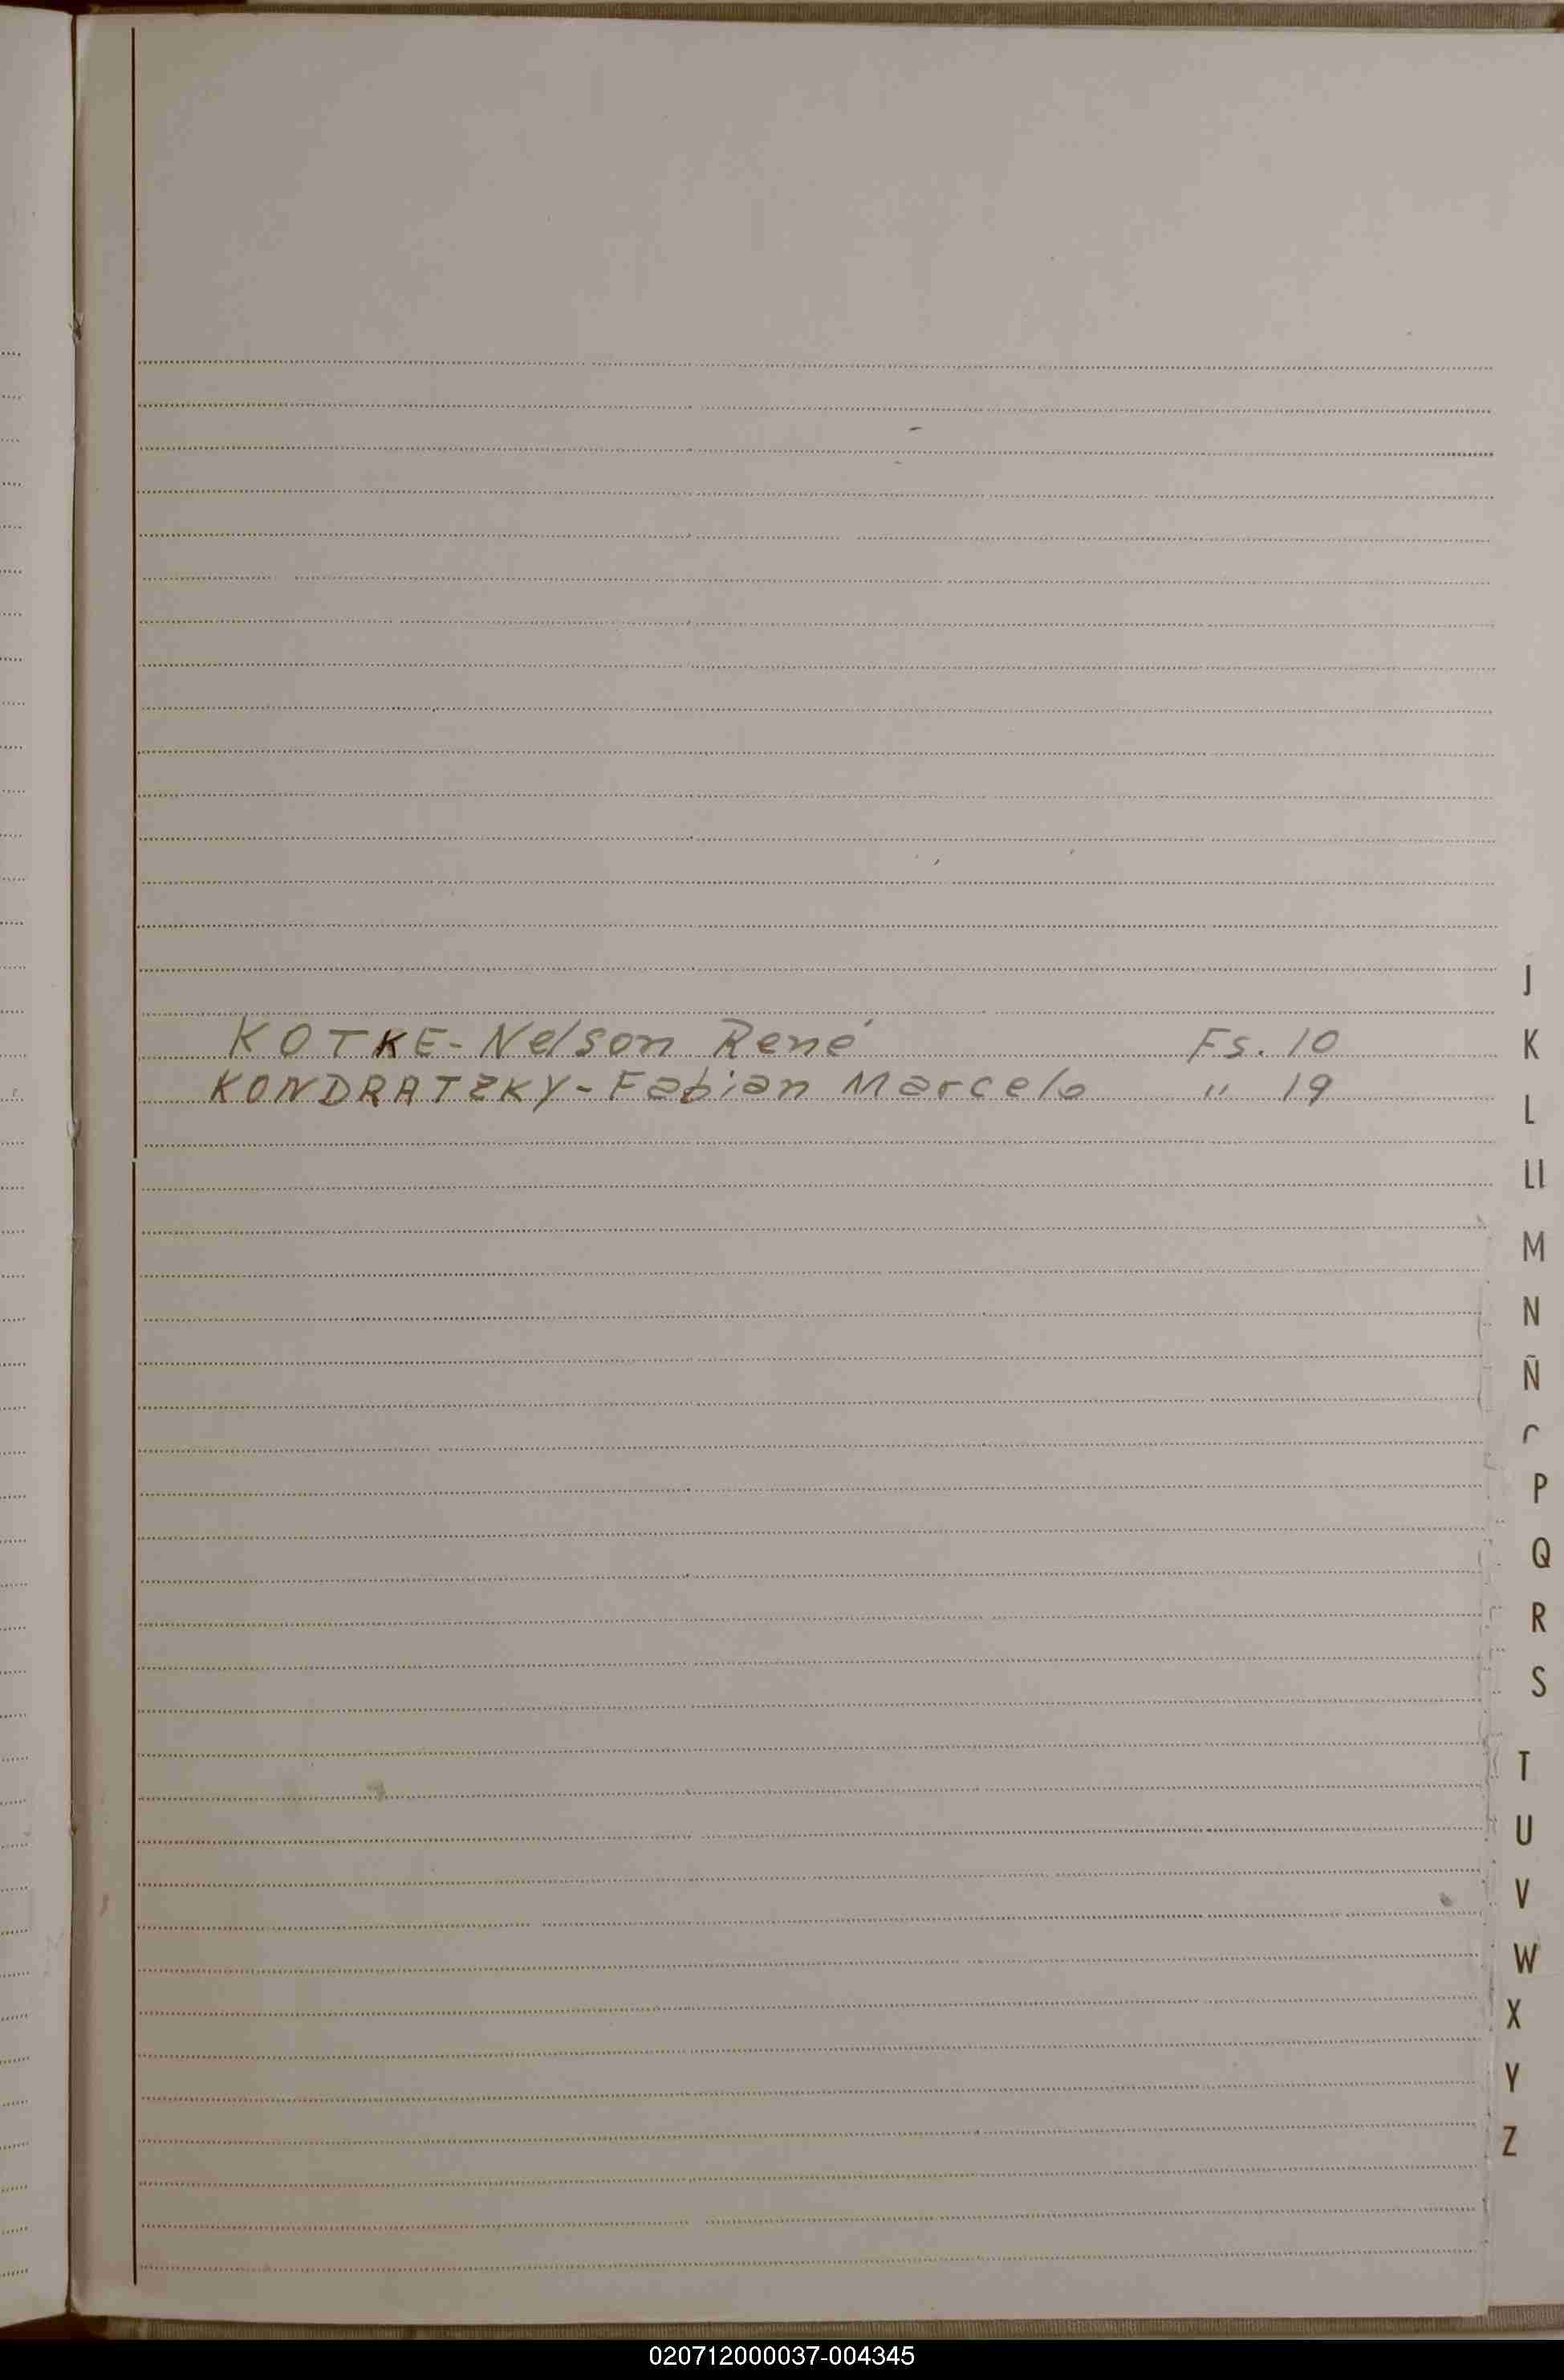 J
KOTKE-Nelson René Fs. 10
K
KONDRATZKY-Fabian Marcelo " 19
L
Ll
M
N
Ñ
P
Q
R
S
T
U
V
W
X
Y
Z
020712000037-004345